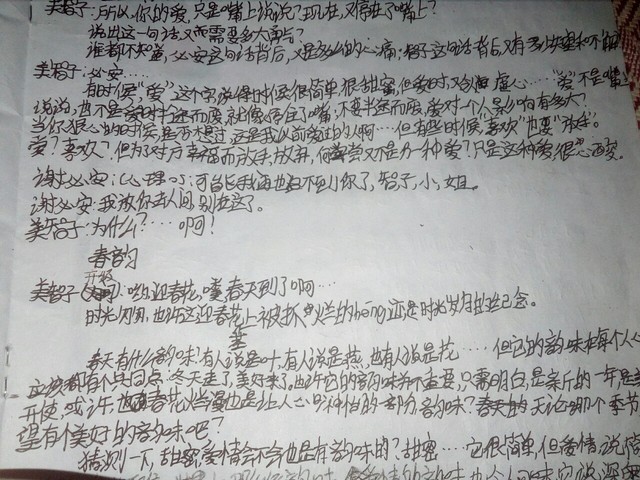 美智子:所以,你的爱,只是嘴上说说?现在,又停在了嘴上?
说出这一句话,又需要多大勇气?
谁都不知道,必安这句话背后,又是多么的心痛;智子这句话背后,又有多少失望和不
美智子:必安……
有时候,"爱"这个字说得时候很简单,很甜蜜,但爱时,又会很虚心……"爱"不是嘴上
说说,也不是爱时半途而废,就像停在了嘴,不要半途而废,爱对一个人影响有多大?
当你狠心的时候,是否想过,这是我以前爱过的人啊……但有些时候"喜欢"也要"放手"。
爱?喜欢?但为了对方幸福而放手,放弃,何尝又不是另一种爱?只是这种爱很心酸。
谢必安:(心理):可能我再也见不到你了,智子,小姐。
谢必安:我放你去人间,别在这了。
美智子:为什么?……啊?
春韵
美智子 :哟,迎春花,嘻,春天到了啊…
时光匆匆,也许这迎春花上被抓烂的痕迹是时光岁月的纪念。
春天有什么韵味?有人说是叶,有人说是燕,也有人说是花……但它的韵味在每个人心
应该都有个共同点:冬天走了,美好来了。也许它的韵味并不重要,只需明白,是崭新的一年是
开使,或许,春花烂漫也是让人心旷神怡的部分韵味?无论哪个季节
望有个美好的韵味吧?
猜测一下,甜蜜,爱情会不会也是有韵味的?甜密……它很简单,但爱情,说简